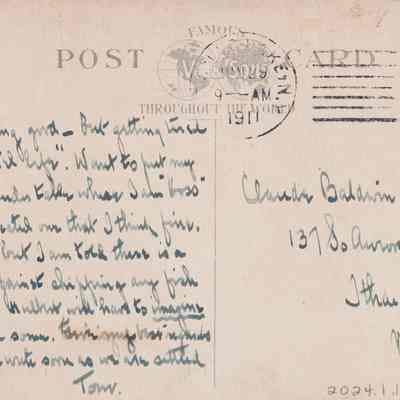 FAMOUS
POST CARD
THROUGHOUT THE WORLD
9 - AM
1911
good - But getting tired
Life". Want to put my
table whose I am "boss"
one that I think fine.
But I am told there is a
against shipping any fish
will have to imagine
some. Give my best regards
write soon as we are settled
Tom.
Claude Baldwin
137 So. Auror
Ithac
N
2024.1.1